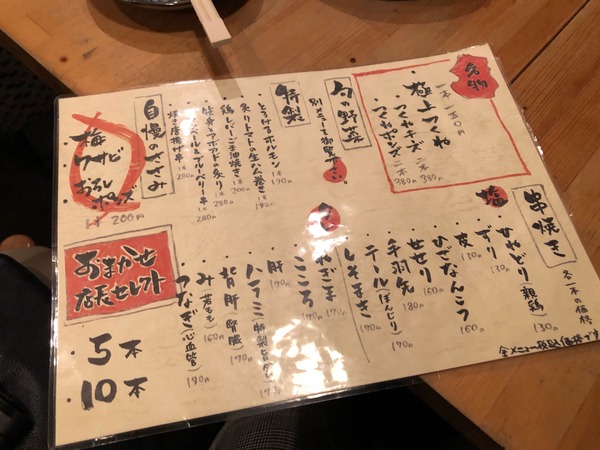 名物
極上つくね
一本 一五〇円
つくねチーズ 二本 380円
つくねポンズ 二本 380円
旬の野菜
別メニューを御覧下さい。
特製
とろけるホルモン 190円
炙りトマトの生ハム巻き 1本 190円
鶏レバーごま油焼き 1本 300円
1本 280円
280円
自慢のささみ
梅
ワサビ
おろしポンズ
1本 200円
串焼き
各一本の価格
塩
ひねどり(親鶏) 130円
ずり 130円
皮 130円
ひざなんこつ 160円
せせり 160円
手羽先 180円
テール(ぼんじり) 170円
しそまき 190円
170円
こころ 170円
肝 170円
ハラミ
背肝(腎臓) 170円
み(若もも) 160円
つなぎ(心血管) 190円
おまかせ
店長セレクト
5本
10本
全メニュー税込価格です